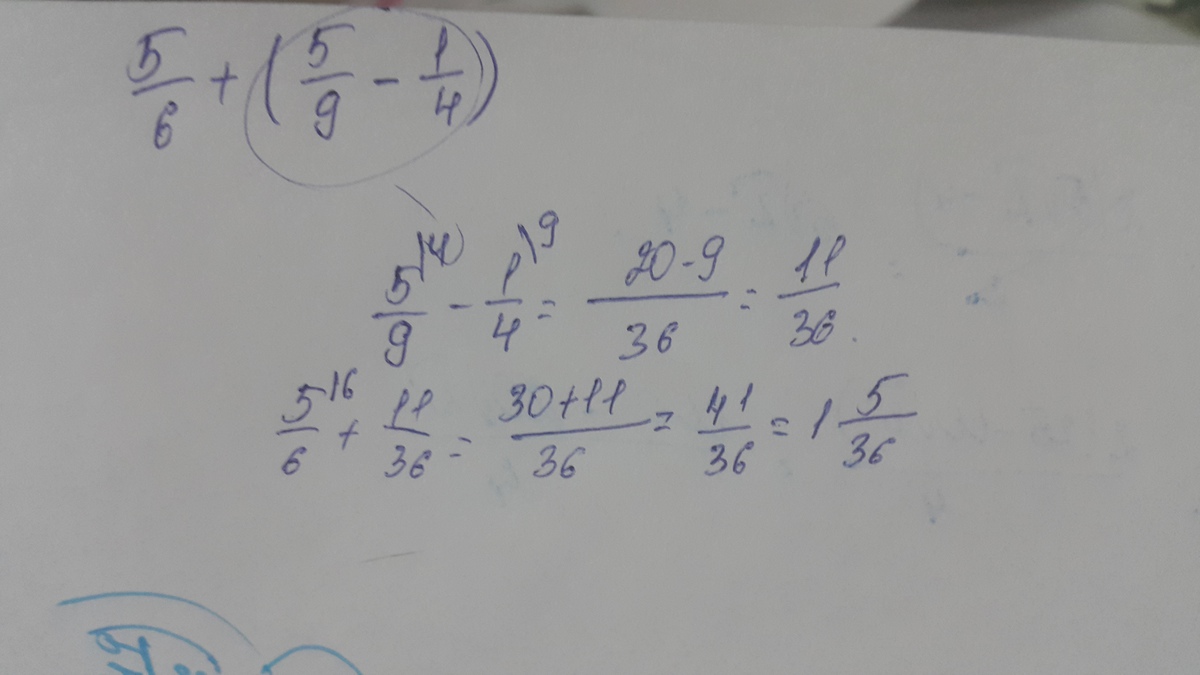 5/6 + (5/9 - 1/4)
5/9 \4 - 1/4 \9 = 20-9/36 = 11/36.
5/6 \6 + 11/36 = 30+11/36 = 41/36 = 1 5/36